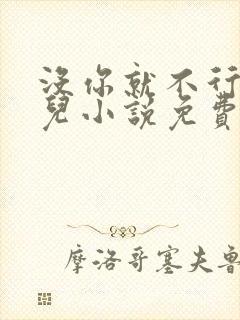 沒你就不行
兒小說免費
摩洛哥塞夫魯